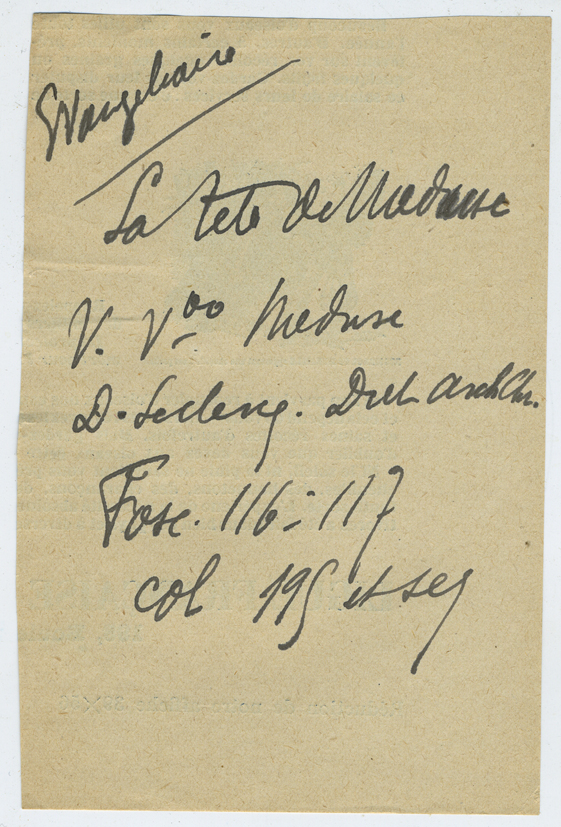 Evangeliaire
La Tete de Meduse
V. V°° Meduse
D. Leclercq. Dict. Arch Chr.
Fasc. 116-117
col 195 et seq